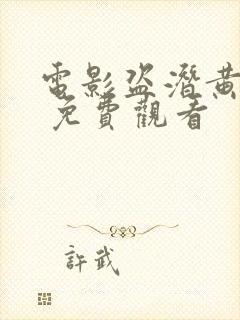 電影盜潛黃
免費觀看
許武